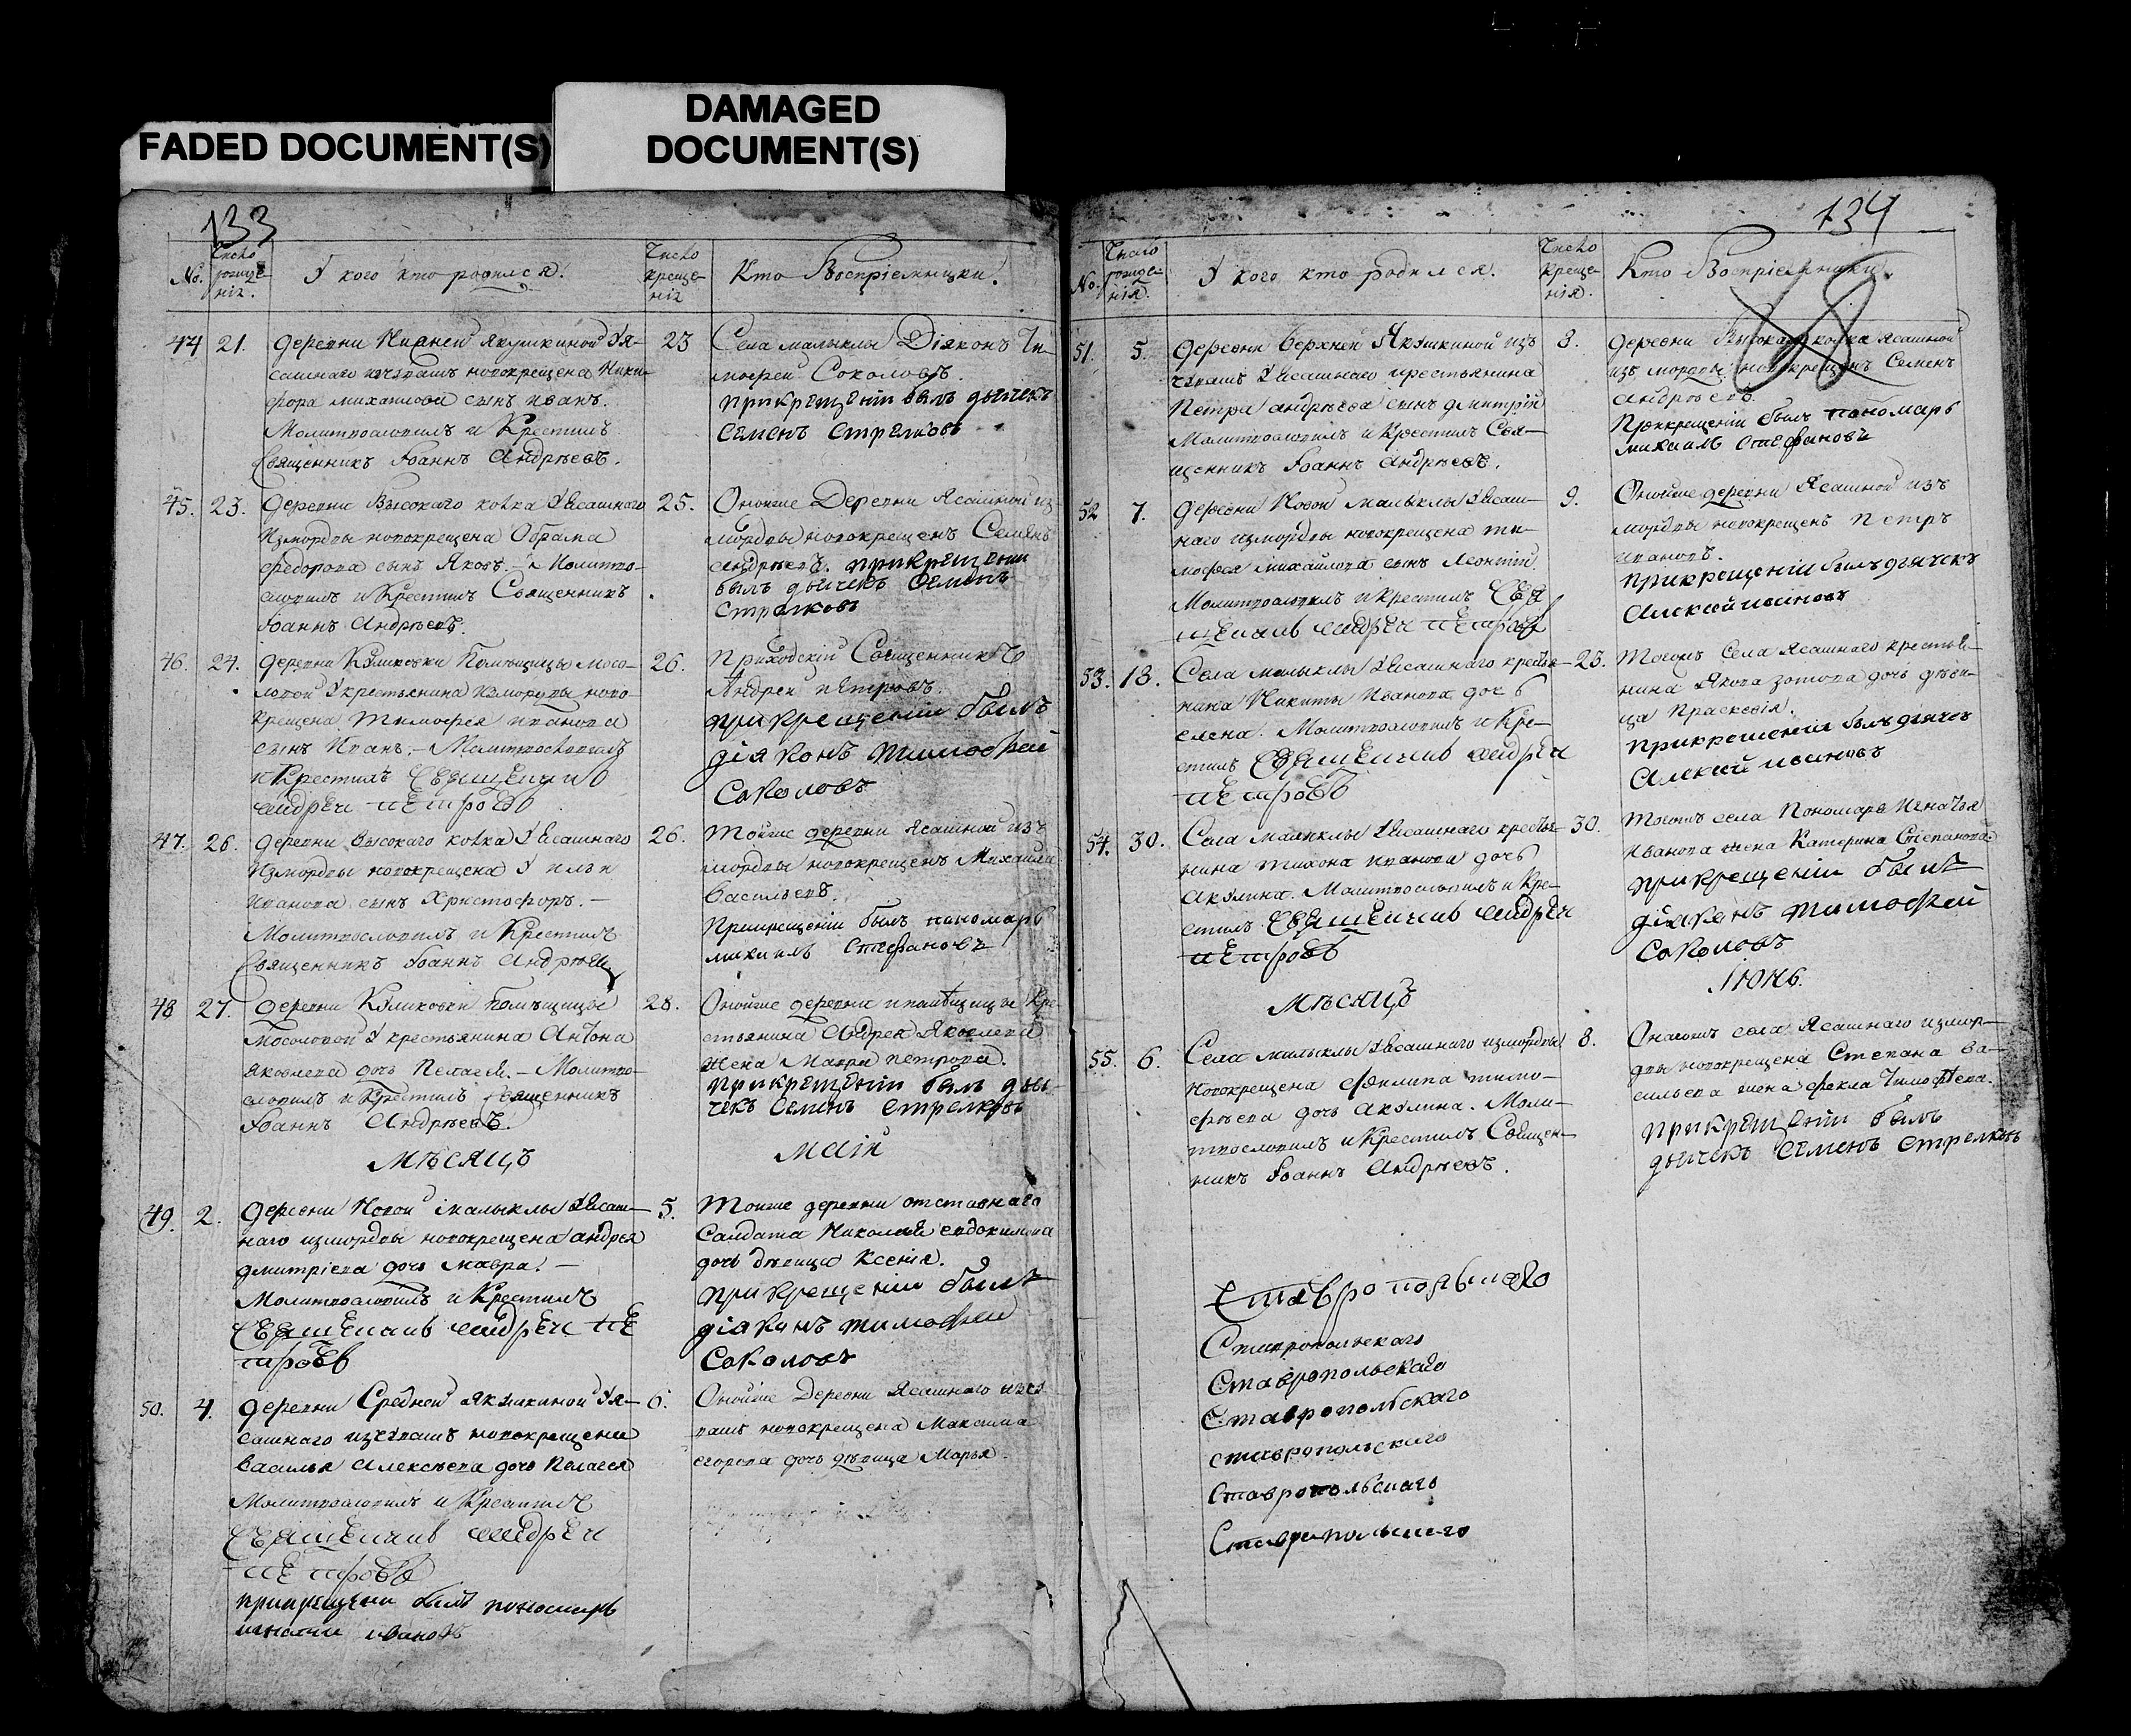 FADED DOCUMENT(S)
DAMAGED
DOCUMENT(S)
133
No.
Число
рожде-
нія.
У кого кто родился.
Число
креще-
нія
Кто Воспріемники.
44
21.
деревни Нижней Якушкиной У я-
сашнаго изчувашъ новокрещена Ники-
фора михаилова сынъ иванъ.
Молитвословилъ и Крестилъ
Священникъ Іоаннъ Андрѣевъ.
23
Села малыклы Діяконъ Ти-
мофей Соколовъ.
прикрещеніи былъ дьячекъ
Семенъ Стрелковъ
45.
23.
деревни Высокаго колка У Ясашнаго
Измордвы новокрещена Обрама
федорова сынъ Яковъ. – Молитво-
словилъ и Крестилъ Священникъ
Іоаннъ Андрѣевъ.
25.
Оной же Деревни Ясашной из
мордвы новокрещенъ Семенъ
андрѣевъ. прикрещении
былъ дьячекъ Семенъ
Стрелковъ
46.
24.
деревни Куликовки Помѣщицы Мосо-
ловой У крестьянина измордвы ново-
крещена Тимофея иванова
сынъ Иванъ. – Молитвословилъ
и Крестилъ Священникъ
андреи петровъ
26.
Приходскій Священникъ
Андреи петровъ.
прикрещеніи былъ
діяконъ тимофей
Соколовъ
47.
26.
деревни высокаго колка У Ясашнаго
Измордвы новокрещена У ильи
Иванова сынъ Христофоръ. –
Молитвословилъ и Крестилъ
Священникъ Іоаннъ Андрѣевъ
26.
Той же деревни Ясашной изъ
мордвы новокрещенъ Михаила
васильевъ.
Прикрещеніи былъ пономарь
михаилъ Стефановъ
48
27.
деревни Куликовки Помѣщицы
Мосоловой У крестьянина Антона
яковлева дочь Пелагея. – Молитво-
словилъ и Крестилъ священникъ
Іоаннъ Андрѣевъ.
28.
Оной же деревни и помѣщицы Кре
стьянина Андрея Яковлева
жена Мавра петрова.
прикрещеніи былъ дья-
чекъ Семенъ Стрелковъ
Мѣсяцъ
маій
49.
2.
деревни Новой малыклы У Ясаш-
наго измордвы новокрещена андрея
дмитріева дочь мавра. –
Молитвословилъ и Крестилъ
Священникъ андреи пе
тровъ
5.
Той же деревни отставнаго
Салдата Николая евдокимова
дочь дѣвица Ксенія.
прикрещеніи былъ
діяконъ тимофеи
Соколовъ
50.
4.
деревни Средней якушкиной У я-
сашнаго изчувашъ новокрещена
василья алексѣева дочь Пелагея
Молитвословилъ и Крестилъ
Священникъ андреи
петровъ
прикрещени былъ пономарь
игнатии ивановъ
6.
Оной же Деревни Ясашнаго изчу
вашъ новокрещена Максима
егорова дочь дѣвица Марья.
134
No.
Число
рожде-
нія.
У кого кто родился.
Число
креще-
нія.
Кто Воспріемники.
51.
5.
деревни верхней Якушкиной изъ
чувашъ У Ясашнаго крестьянина
Петра андрѣева сынъ дмитрій
Молитвословилъ и Крестилъ Свя-
щенникъ Іоаннъ Андрѣевъ.
8.
деревни Высокаго колка Ясашной
изъ мордвы новокрещенъ Семенъ
андрѣевъ.
Прикрещеніи былъ пономарь
михаилъ Стефановъ
52
7.
деревни Новой малыклы У Ясаш-
наго измордвы новокрещена ти-
мофея михайлова сынъ Леонтій.
Молитвословилъ и крестилъ Свя
щеникъ андреи петровъ
9.
Оной же деревни Ясашной изъ
мордвы новокрещенъ петръ
ивановъ.
прикрещеніи былъ дьячекъ
Алексей ивановъ
53.
18.
Села малыклы У Ясашнаго крестья-
нина Никиты Иванова дочь
елена. Молитвословилъ и Кре-
стилъ Священникъ андреи
петровъ
23.
Тогожъ Села Ясашнаго крестья-
нина Якова зотова дочь дѣви-
ца Прасковія.
прикрещеніи былъ дьячекъ
Алексей ивановъ
54.
30.
Села малыклы У Ясашнаго крестья-
нина тихона иванова дочь
акулина. Молитвословилъ и Кре-
стилъ. Священникъ андреи
петровъ
30.
Тогожъ села Пономаря Игнатья
Иванова жена Катерина Степанова
прикрещеніи былъ
діяконъ тимофей
Соколовъ
Мѣсяцъ
Іюнь.
55.
6.
Села малыклы У Ясашнаго измордвы
новокрещена филипа тимо-
фѣева дочь акулина. Моли-
твословилъ и Крестилъ Священ-
никъ Іоаннъ Андрѣевъ.
8.
Оногожъ села Ясашнаго измор-
двы новокрещена Степана ва-
сильева жена фекла Тимофѣева.
прикрещеніи былъ
дьячекъ Семенъ Стрелковъ
Ставропольскаго
Ставропольскаго
Ставропольскаго
Ставропольскаго
ставропольскаго
Ставропольскаго
Ставропольскаго